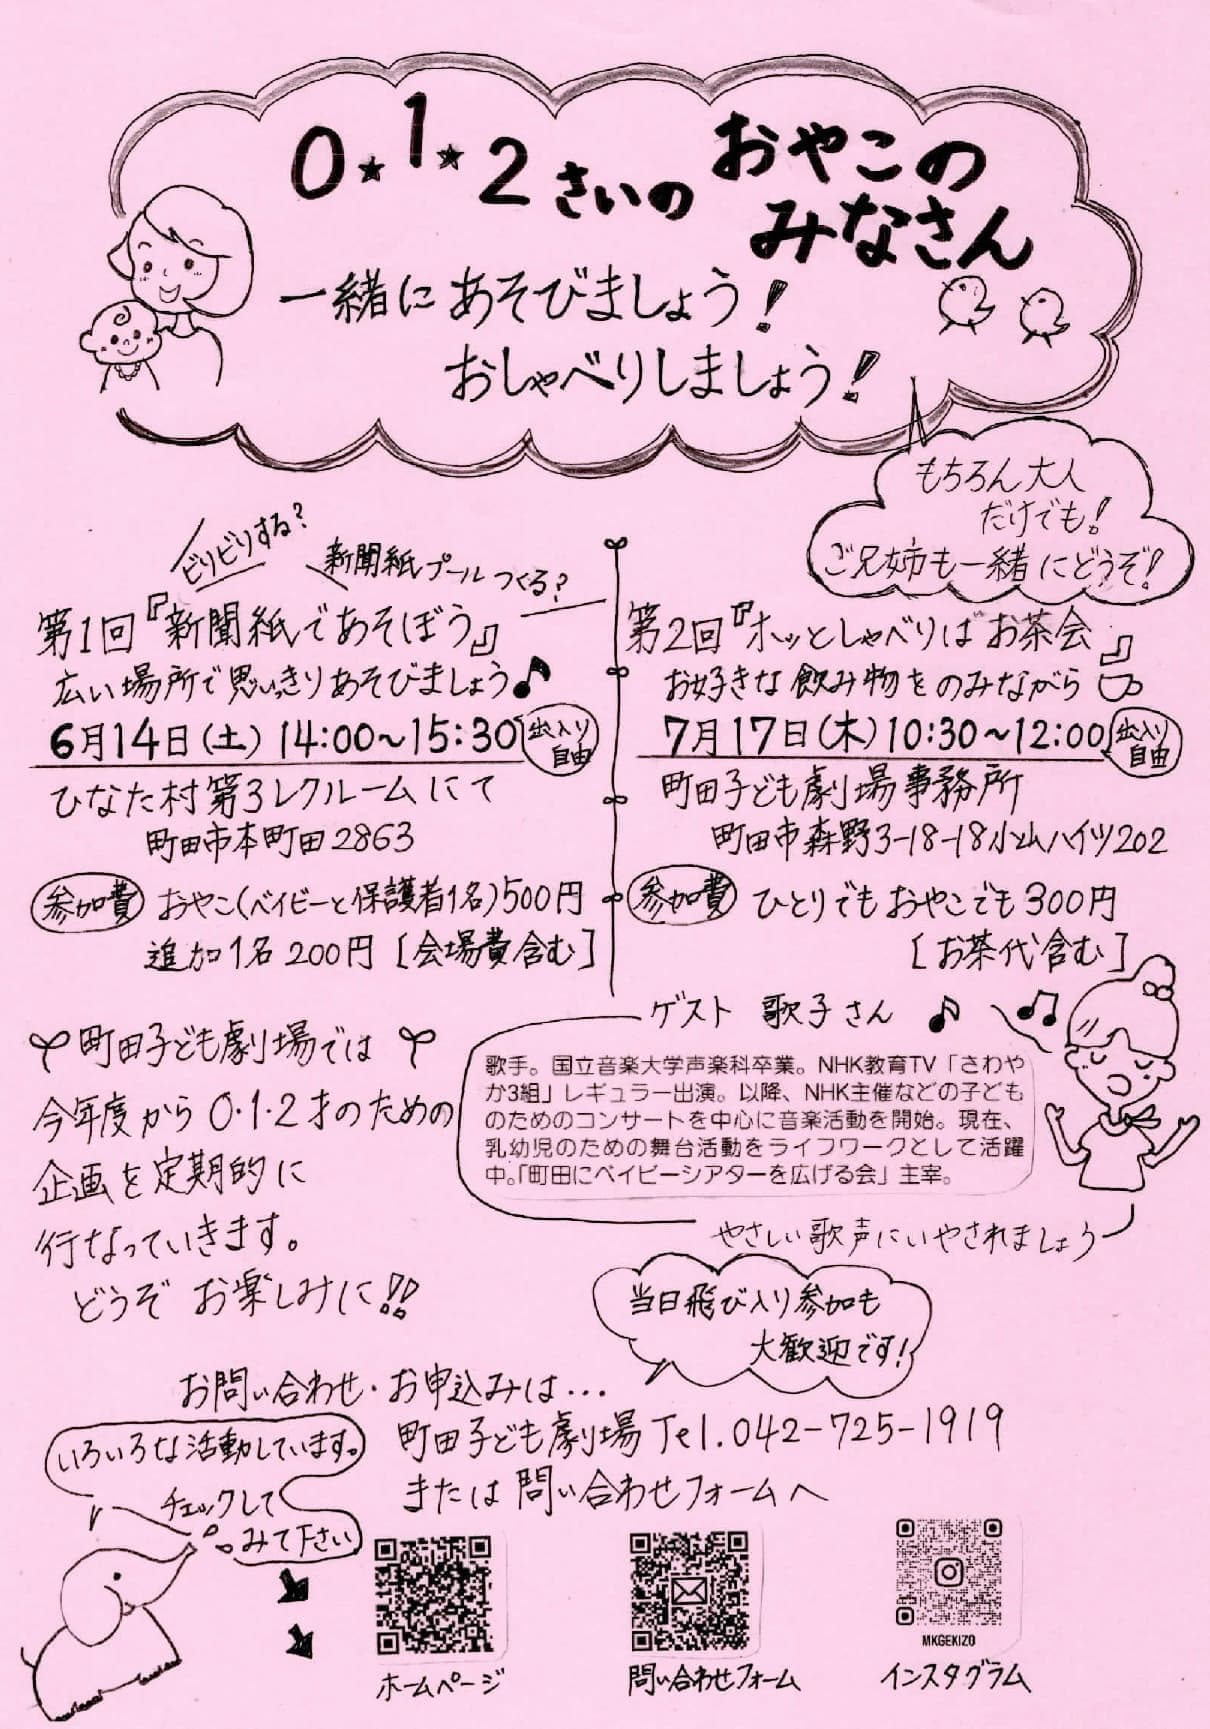 0★1★2さいの おやこの
みなさん
一緒に あそびましょう!
おしゃべりしましょう!
もちろん大人
だけでも!
ご兄姉も一緒にどうぞ!
ビリビリする?
新聞紙プール つくる?
第1回『新聞紙であそぼう』
広い場所で思いっきりあそびましょう♪
6月14日(土) 14:00〜15:30
出入り
自由
ひなた村第3レクルームにて
町田市本町田2863
参加費 おやこ(ベイビーと保護者1名)500円
追加1名 200円 [会場費含む]
第2回『ホッとしゃべりば お茶会』
お好きな飲み物をのみながら
7月17日(木) 10:30〜12:00
出入り
自由
町田子ども劇場事務所
町田市森野3-18-18小山ハイツ202
参加費 ひとりでもおやこでも300円
[お茶代含む]
ゲスト 歌子さん ♪ ♫
歌手。国立音楽大学声楽科卒業。NHK教育TV「さわや
か3組」レギュラー出演。以降、NHK主催などの子ども
のためのコンサートを中心に音楽活動を開始。現在、
乳幼児のための舞台活動をライフワークとして活躍
中。「町田にベイビーシアターを広げる会」主宰。
やさしい歌声にいやされましょう
町田子ども劇場では
今年度から0・1・2才のための
企画を定期的に
行なっていきます。
どうぞ お楽しみに!!
当日飛び入り参加も
大歓迎です!
お問い合わせ・お申込みは・・・
町田子ども劇場 Tel.042-725-1919
または 問い合わせフォームへ
いろいろな活動しています。
チェックして
みて下さい
MKGEKIZO
ホームページ
問い合わせフォーム
インスタグラム